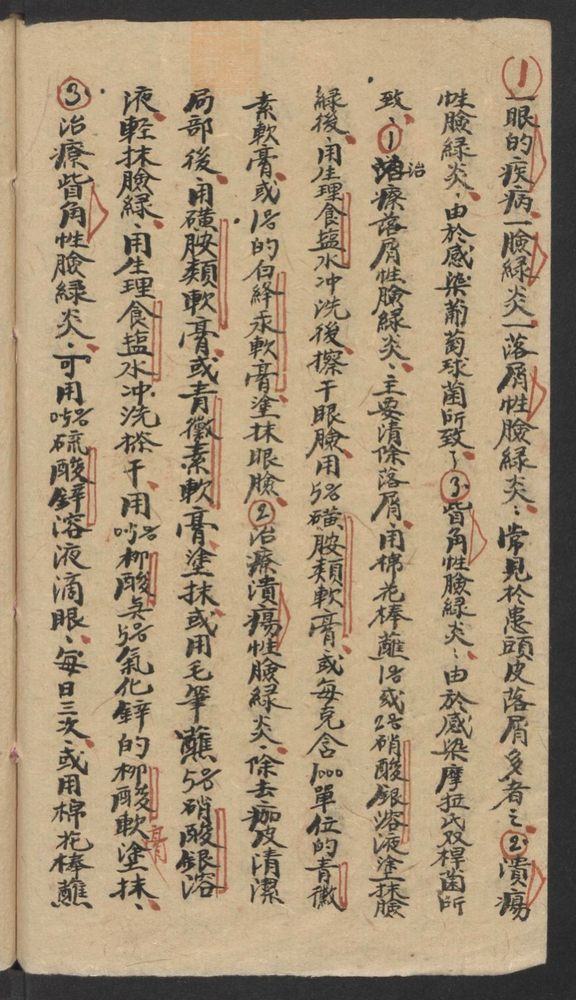 ①一眼的疾病一臉緣炎一落屑性臉緣炎：常見於患頭皮落屑多者之②潰瘍
性臉緣炎、由於感染葡萄球菌所致、③眥角性臉緣炎：由於感染摩拉氏双桿菌所
致、①治療落屑性臉緣炎、主要清除落屑、用棉花棒蘸1%或2%硝酸銀溶液塗抹臉
緣後、用生理食塩水冲洗後、擦干眼臉、用5%磺胺類軟膏、或每克含1000單位的青黴
素軟膏、或1%的白絳汞軟膏塗抹眼臉、②治療潰瘍性臉緣炎、除去痂皮清潔
局部後、用磺胺類軟膏或青黴素軟膏、塗抹或用毛筆蘸5%硝酸銀溶
液、軽抹臉緣、用生理食塩水冲洗搽干、用0.5%柳酸與5%氣化鋅的柳酸軟膏塗抹、
③治療眥角性臉緣炎、可用0.5%硫酸鋅溶液滴眼、每日三次、或用棉花棒蘸